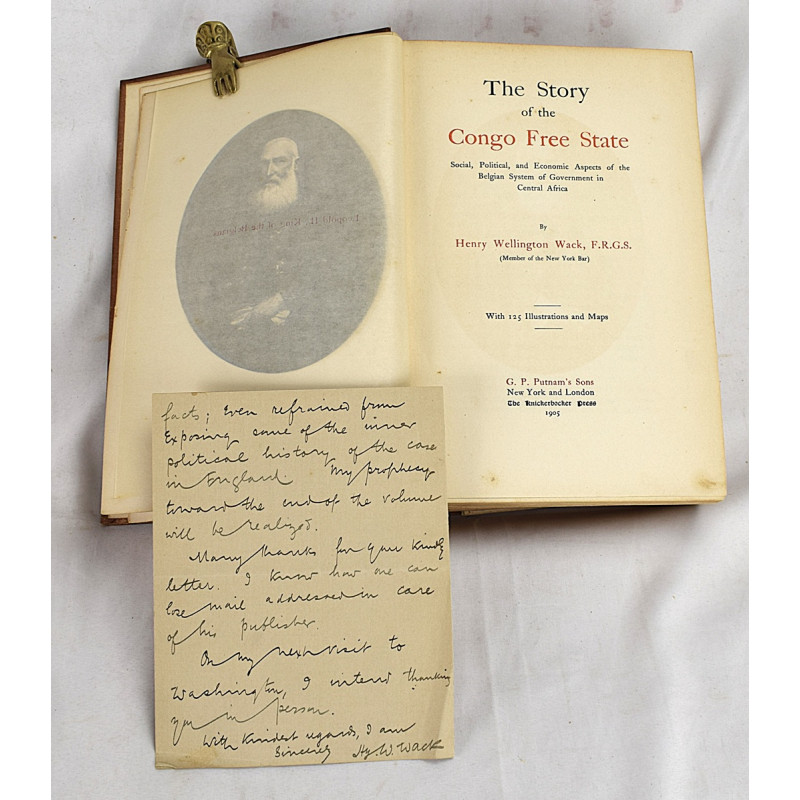 Leopold II., King of the Belgians
The Story
of the
Congo Free State
Social, Political, and Economic Aspects of the
Belgian System of Government in
Central Africa
By
Henry Wellington Wack, F.R.G.S.
(Member of the New York Bar)
With 125 Illustrations and Maps
G. P. Putnam's Sons
New York and London
The Knickerbocker Press
1905
facts; Even refrained from
Exposing some of the inner
political history of the case
in England. My prophecy
toward the end of the volume
will be realized.
Many thanks for your kindly
letter. I know how one can
lose mail addressed in care
of his publisher.
On my next visit to
Washington, I intend thanking
you in person.
With Kindest regards, I am
Sincerely Hy. W. Wack